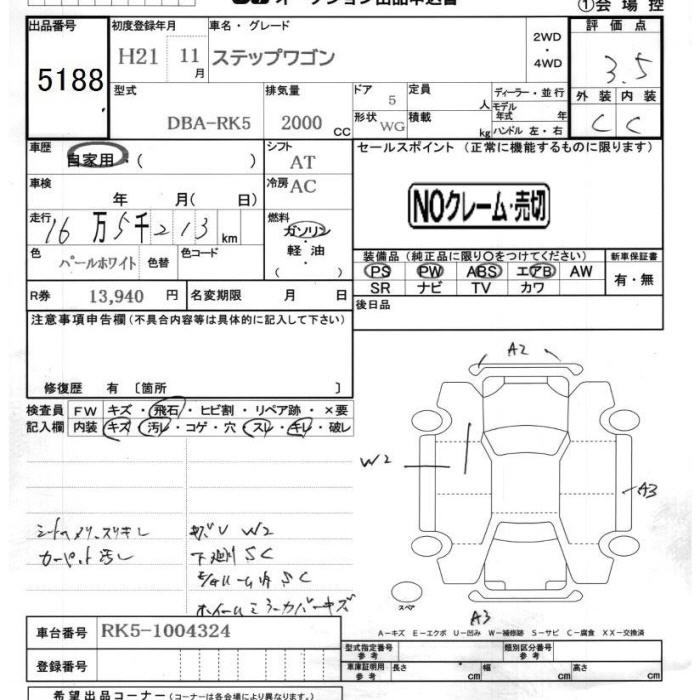 オークション出品申込書
①会場控
出品番号 初度登録年月 車名・グレード 2WD ・ 4WD 評価点
5188 H21 11月 ステップワゴン 3.5
型式 排気量 ドア 定員 ディーラー・並行 外装 内装
DBA-RK5 2000 CC 5 人 モデル年式 年 C C
形状 WG 積載 kg ハンドル 左・右
車歴 自家用・( ) シフト AT セールスポイント (正常に機能するものに限ります)
車検 年 月( 日) 冷房 AC
NOクレーム・売切
走行 16万5千213 km 燃料 ガソリン 軽・油 ( )
色 パールホワイト 色替 色コード
装備品 (純正品に限り○をつけてください) 新車保証書
PS PW ABS エアB AW 有・無
SR ナビ TV カワ
R券 13,940 円 名変期限 月 日
後日品
注意事項申告欄 (不具合内容等は具体的に記入して下さい)
修復歴 有 〔箇所 〕
検査員 FW キズ・飛石・ヒビ割・リペア跡・×要
記入欄 内装 キズ・汚レ・コゲ・穴・スレ・キレ・破レ
A2
W2
A3
A3
スペア
カーペット汚し
W2
下廻りSC
SC
ホイールミラーカバーキズ
A-キズ E-エクボ U-凹み W-補修跡 S-サビ C-腐食 XX-交換済
車台番号 RK5-1004324
登録番号
型式指定番号 参考 類別区分番号 参考
車庫証明用 参考 長さ cm 幅 cm 高さ cm
希望出品コーナー (コーナーは各会場により異なります)